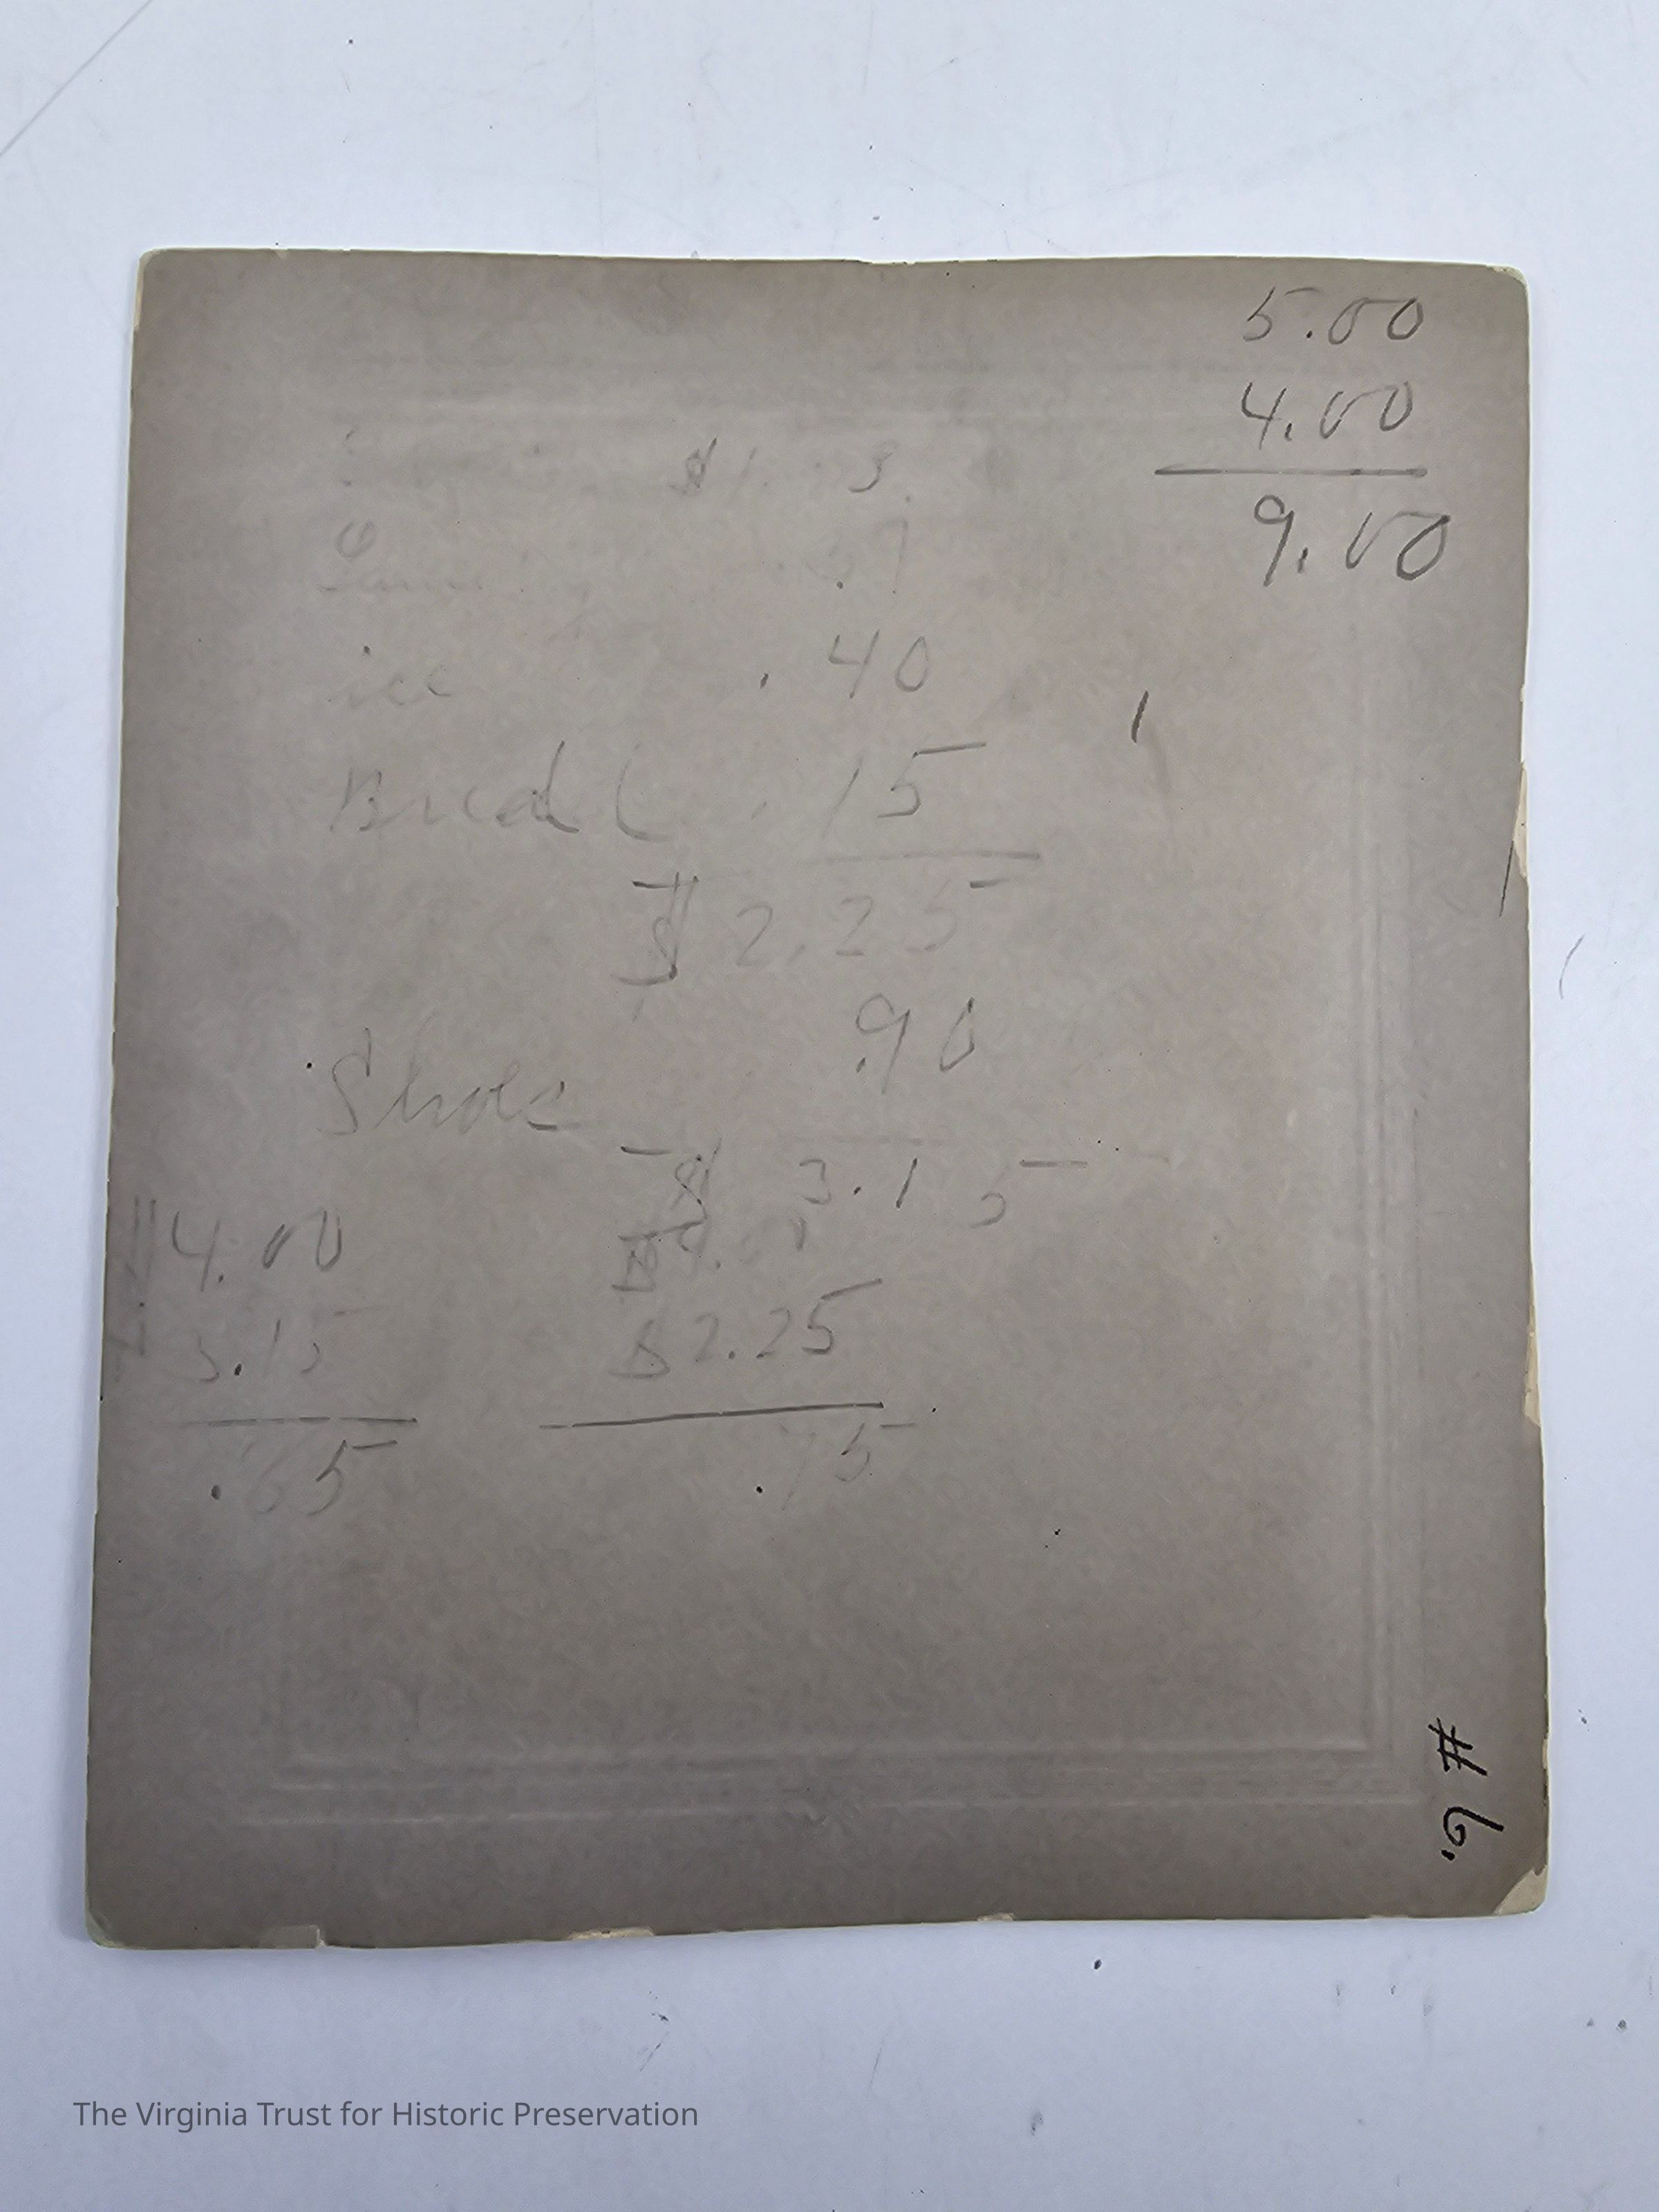 5.00
4.00
9.00
$1. 3
ice .40
Bread .15
$2.25
Shoes .90
$3.15
4.00
3.15
.65
$2.25
.75
# 6.
The Virginia Trust for Historic Preservation